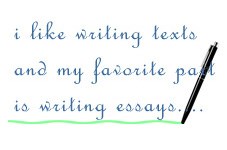 i like writing texts
and my favorite part
is writing essays....